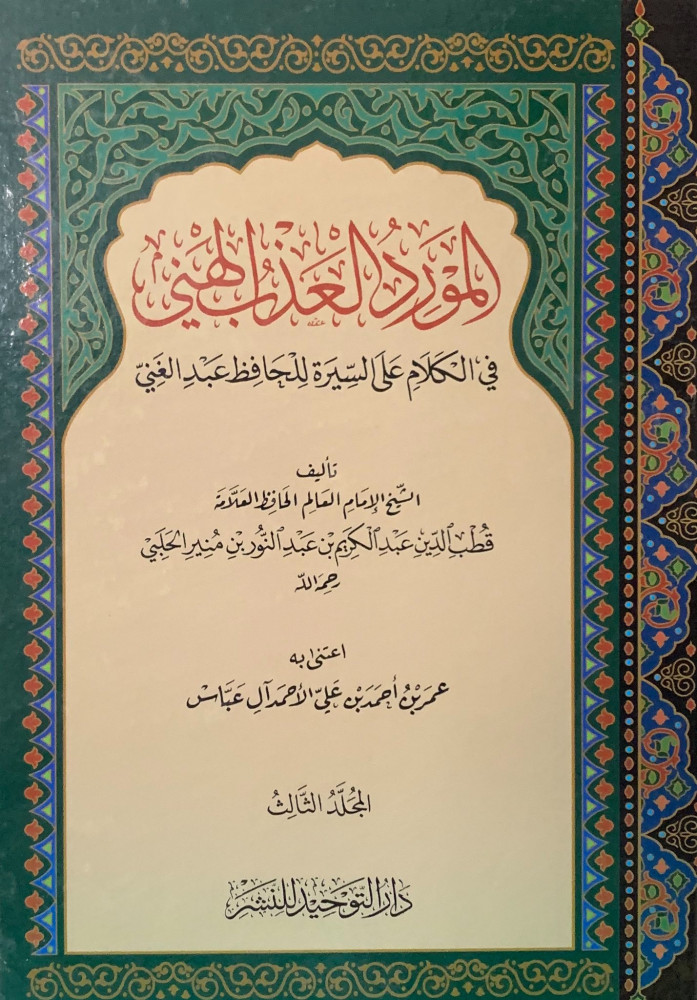 المَوْرِدُ العَذْبُ الهَنِيّ
في الكَلَامِ عَلَى السِّيرَة لِلْحَافِظ عَبْدِ الغَنِيّ
تأليف
الشّيخ الإمَامِ العَالِم الحَافِظ العَلَّامَة
قُطْبِ الدِّينِ عَبْدِ الْكَرِيمِ بْنِ عَبْدِ النُّورِ بْنِ مُنِيرِ الحَلَبِيّ
رحمه الله
اعتنى به
عمَر بْنُ أَحمَد بْن عَليّ الأَحمَد آل عَبَّاسْ
المُجَلَّدُ الثَّالِثُ
دَارُ التَّوْحِيدِ لِلنَّشْرِ